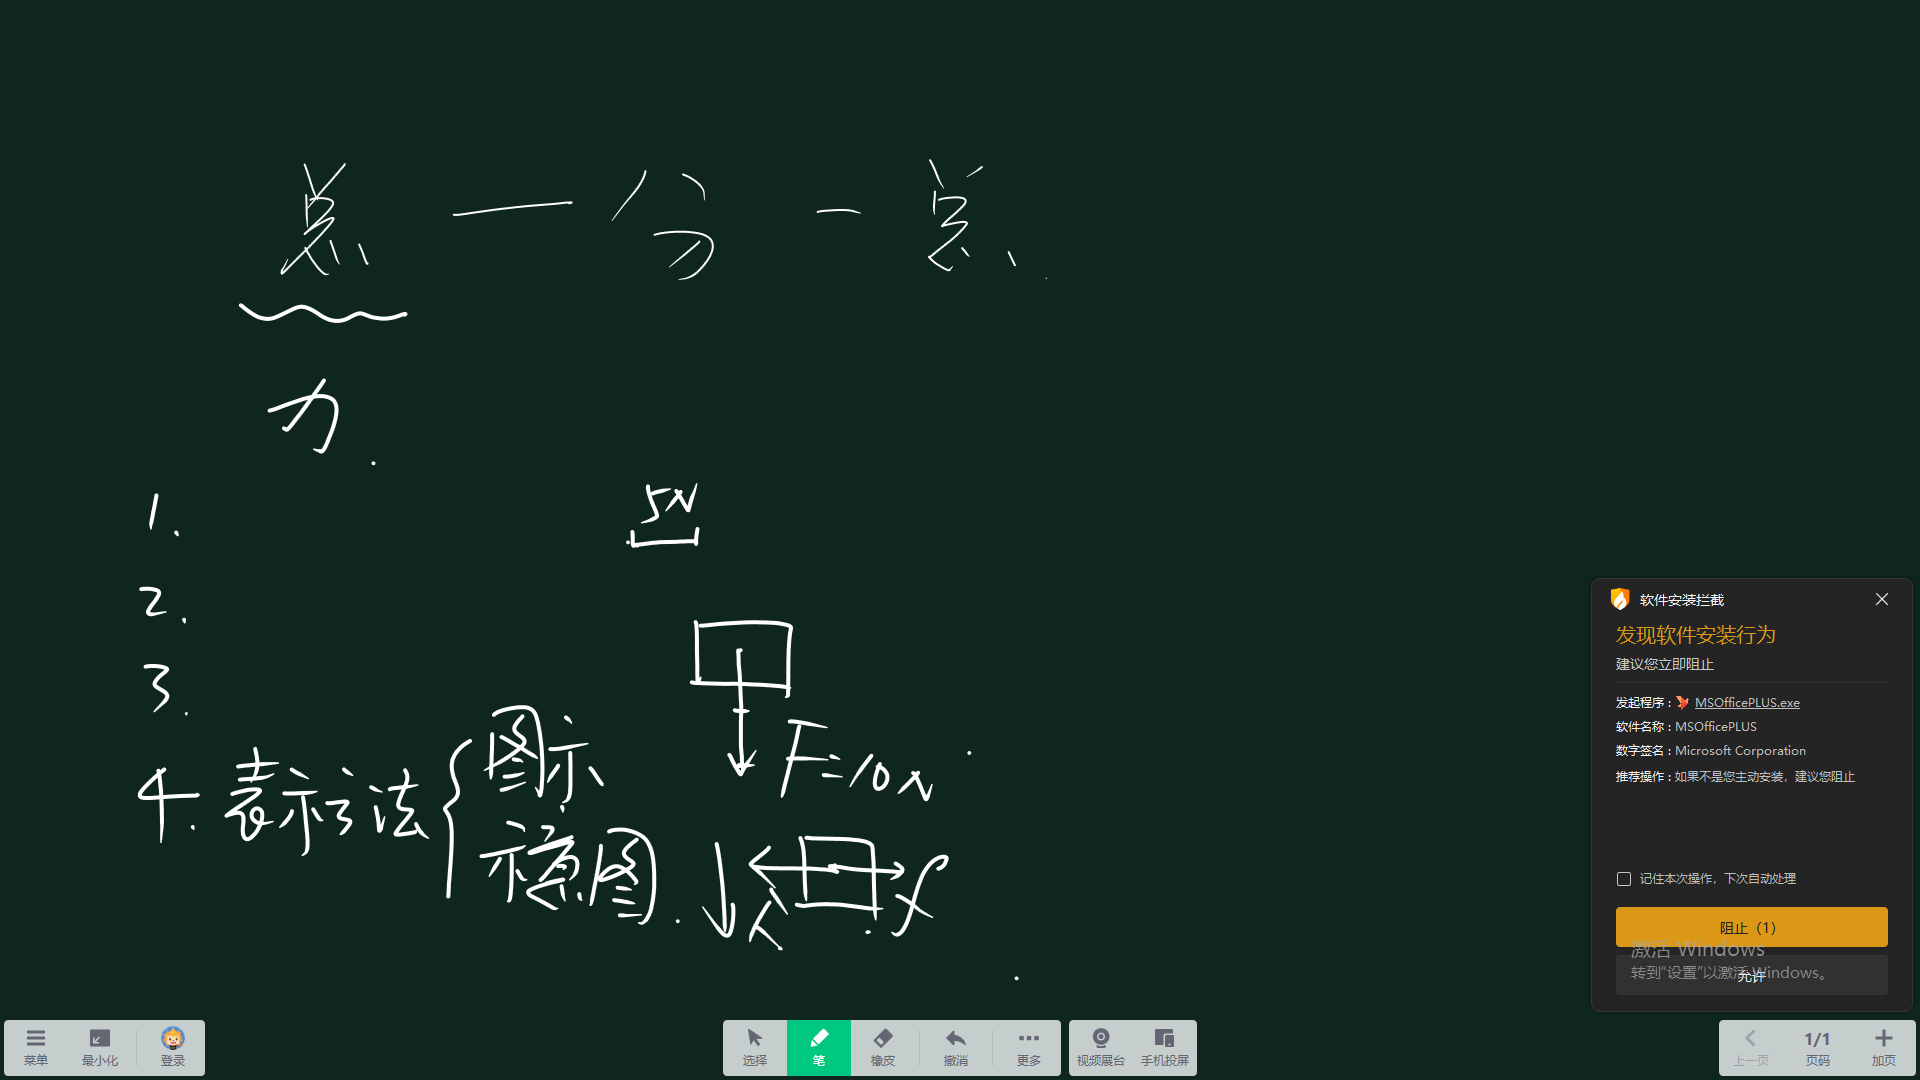 总 — 分 - 总
力.
1.
5N
2.
3.
图示
F=10N
4. 表示法
示意图.
f
软件安装拦截
发现软件安装行为
建议您立即阻止
发起程序： MSOfficePLUS.exe
软件名称：MSOfficePLUS
数字签名：Microsoft Corporation
推荐操作：如果不是您主动安装，建议您阻止
记住本次操作，下次自动处理
阻止（1）
激活 Windows
转到“设置”以激活 Windows。
允许
菜单 最小化 登录
选择 笔 橡皮 撤消 更多
视频展台 手机投屏
1/1
上一页 页码 加页